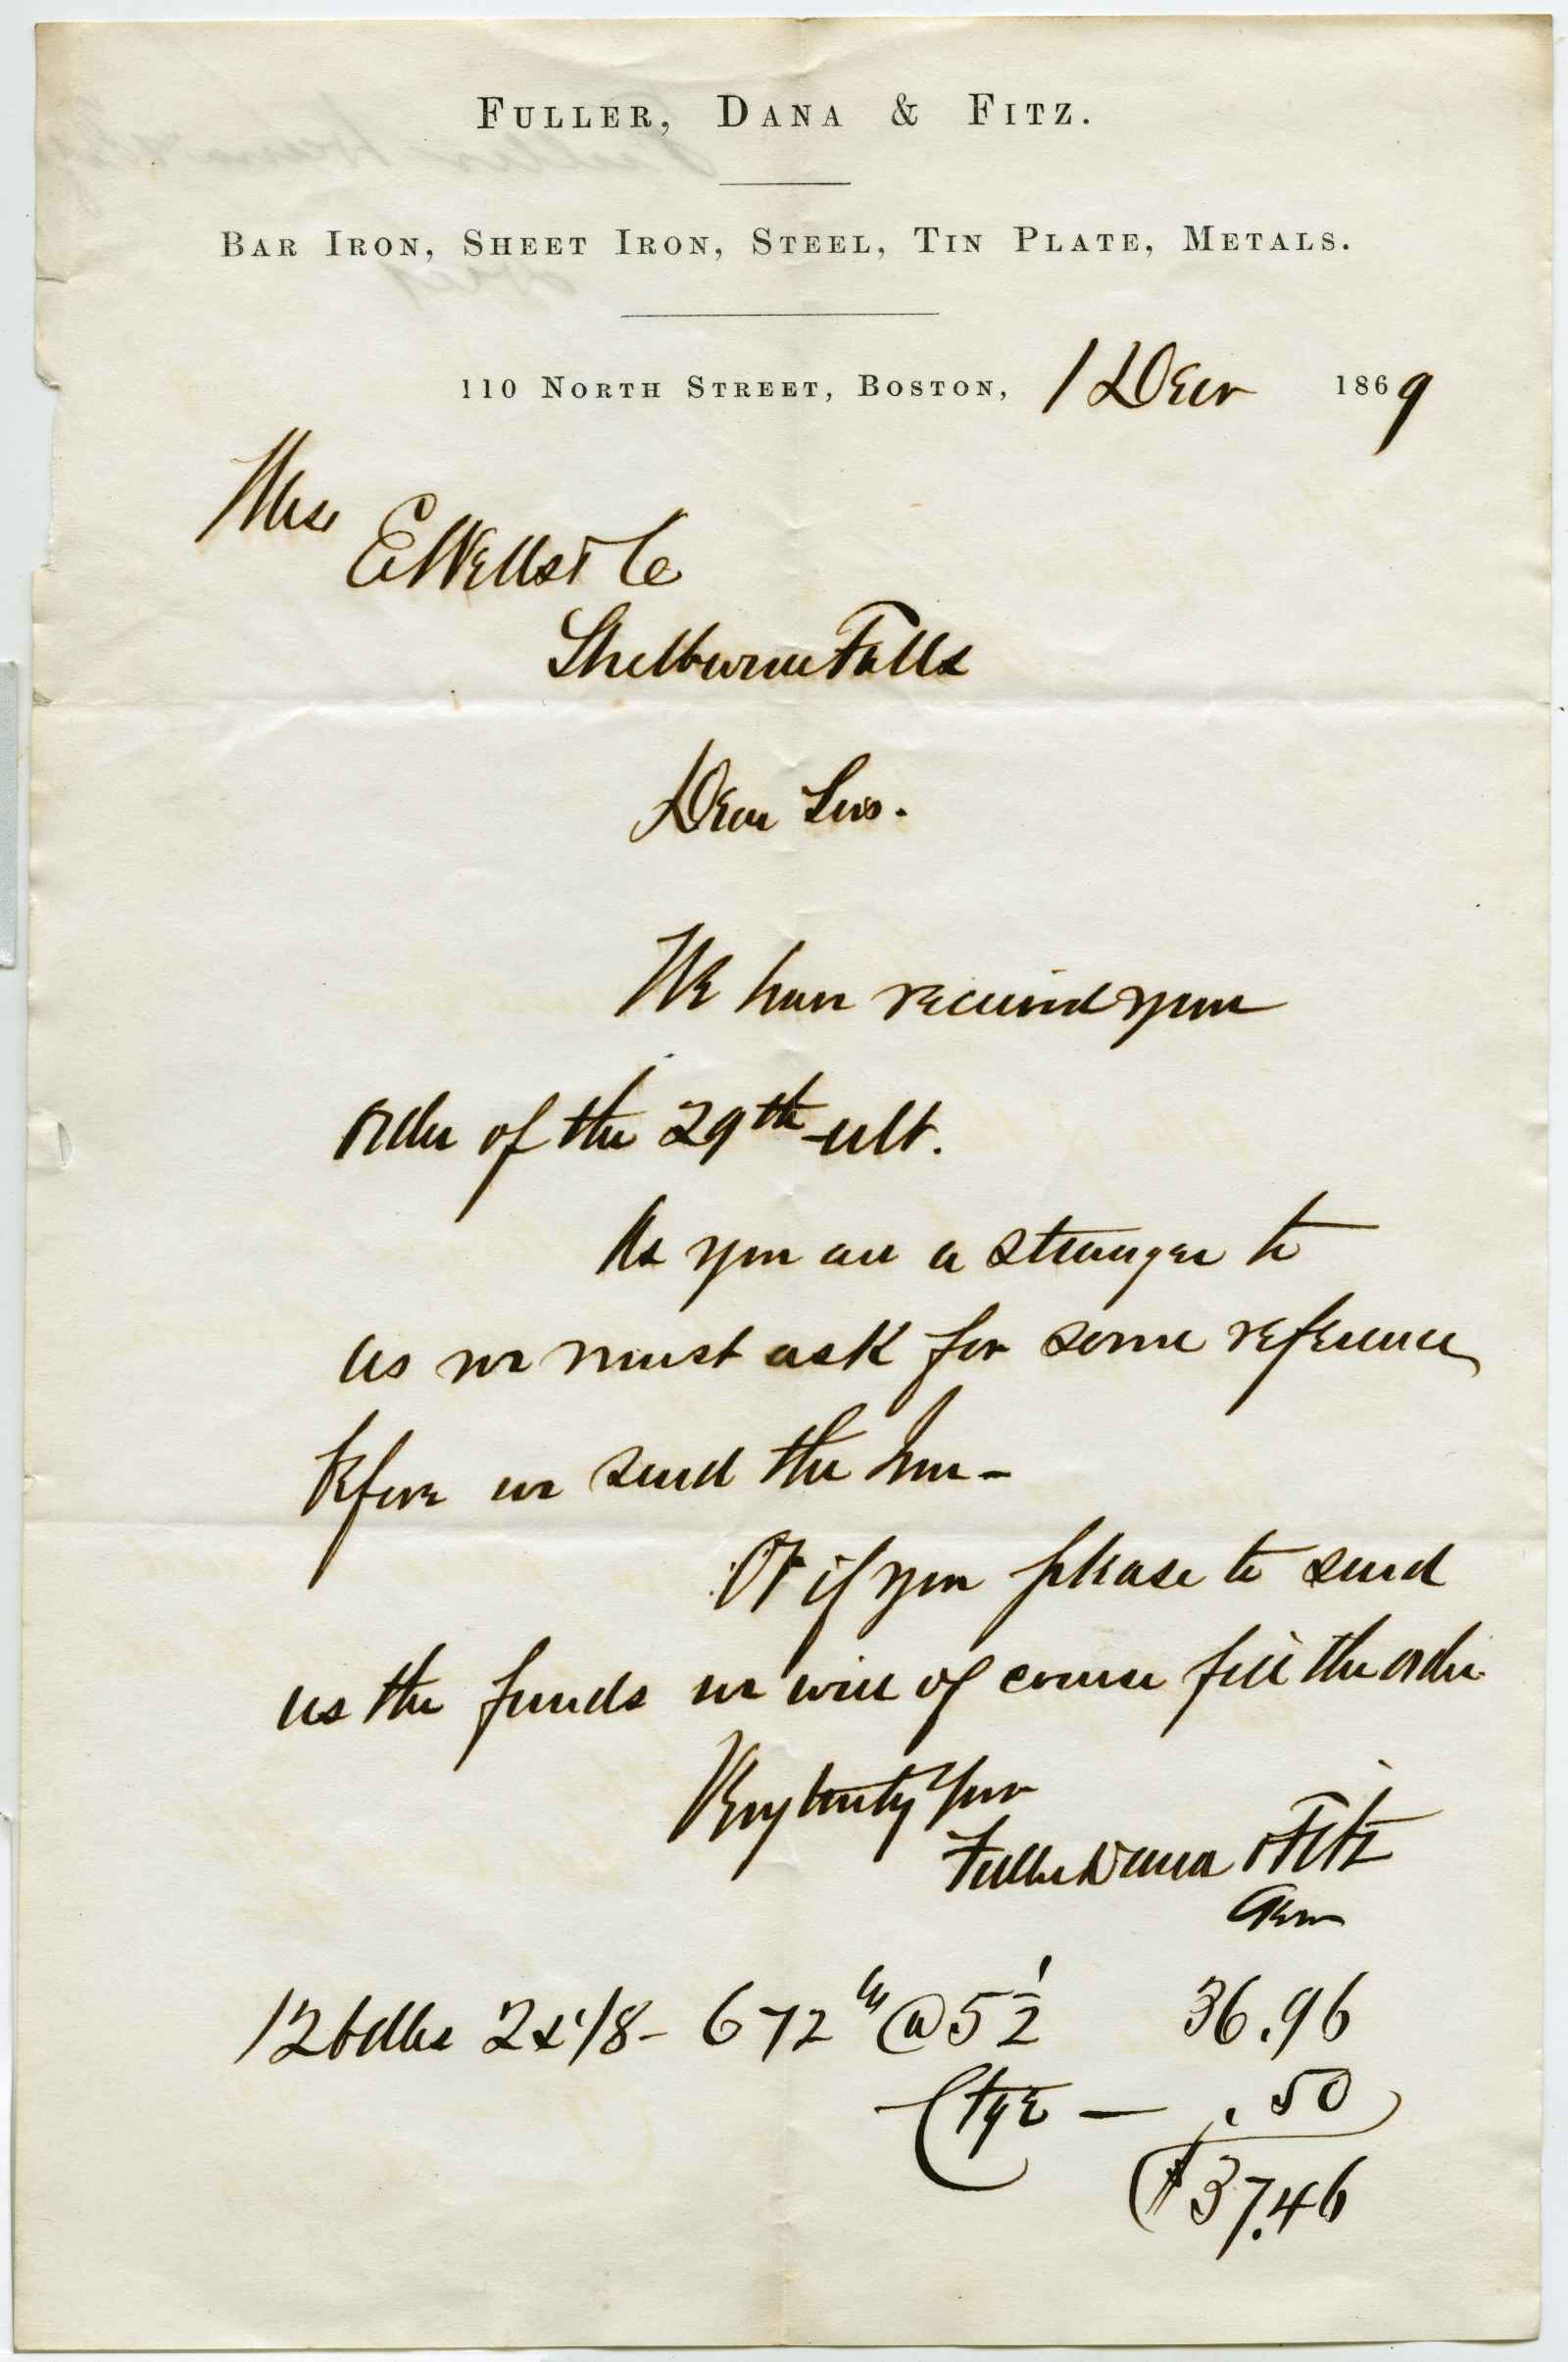 FULLER, DANA & FITZ.
BAR IRON, SHEET IRON, STEEL, TIN PLATE, METALS.
110 NORTH STREET, BOSTON, 1 Decr 1869
Mess
E Wells & Co
Shelburne Falls
Dear Sirs.
We have received your
order of the 29th ult.
As you are a stranger to
us we must ask for some reference
before we send the Iron -
Or if you please to send
us the funds we will of course fill the order.
Very truly Yours
Fuller Dana & Fitz
12 bdles 2 x 1/8 - 672 lbs @ 5 1/2 36.96
Ctge - .50
$37.46